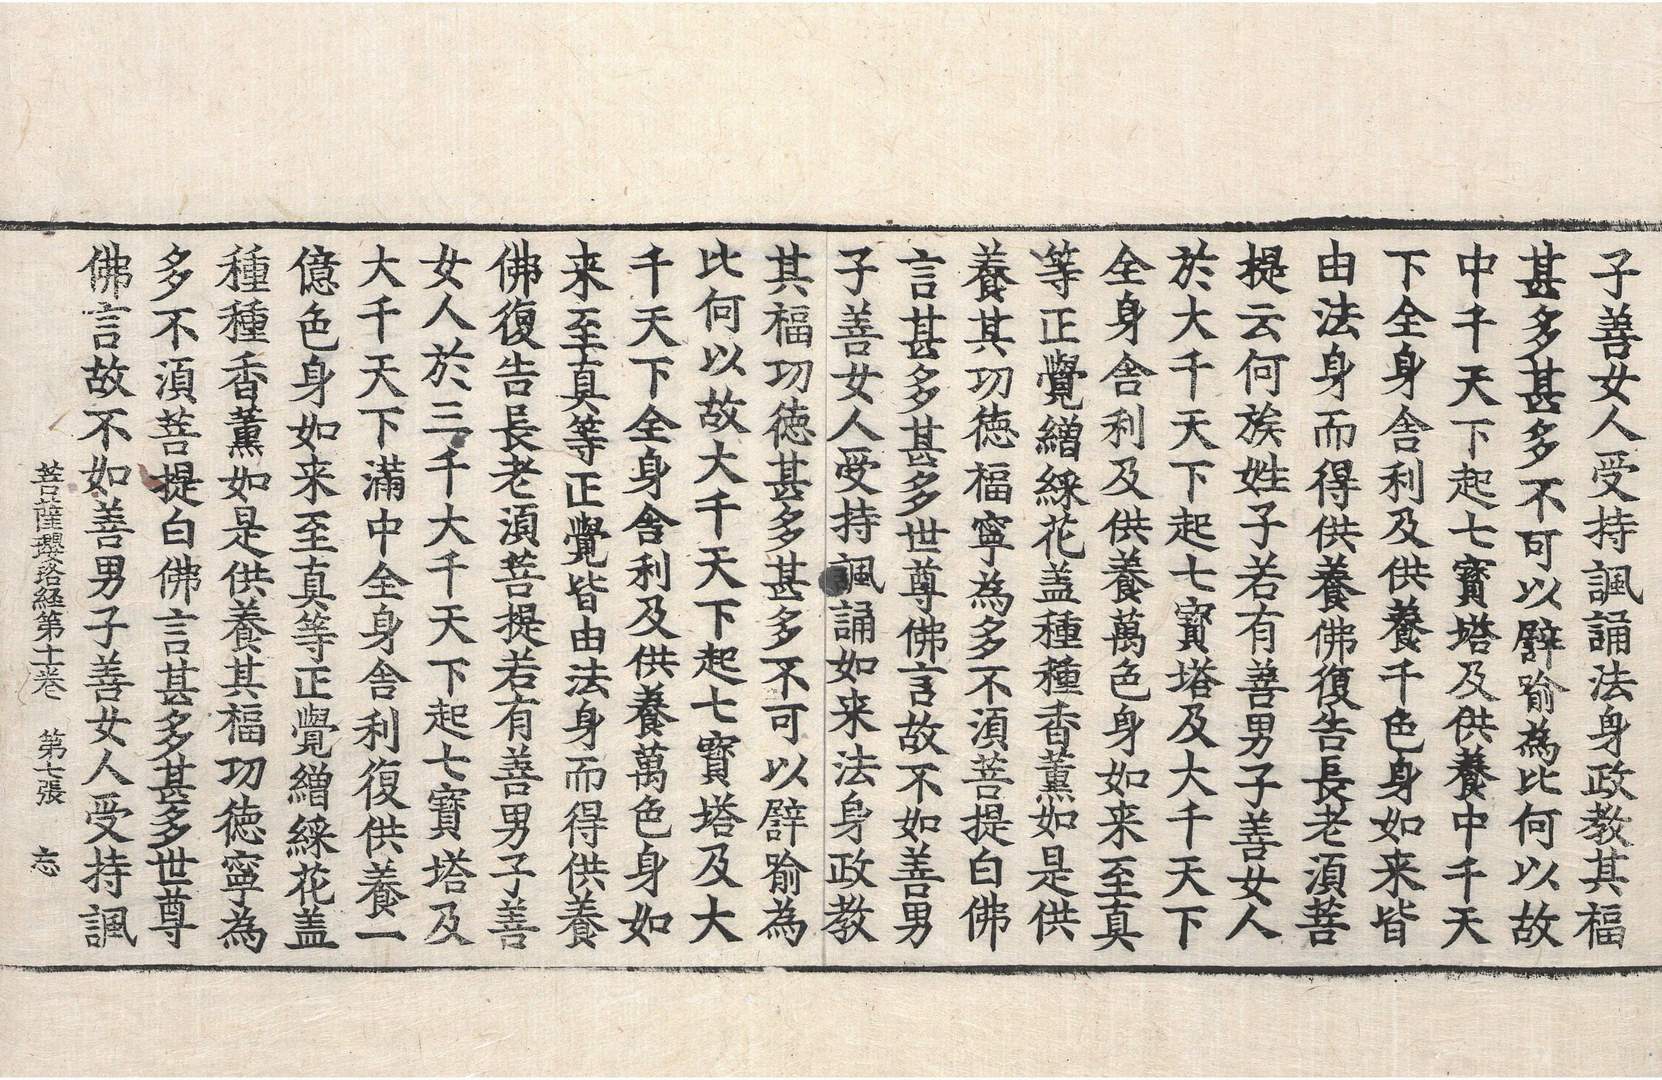 子善女人受持諷誦法身政教其福
甚多甚多不可以譬喻為比何以故
中千天下起七寳塔及供養中千天
下全身舎利及供養千色身如来皆
由法身而得供養佛復告長老湏菩
提云何族姓子若有善男子善女人
於大千天下起七寳塔及大千天下
全身舎利及供養萬色身如来至真
等正覺繒綵花盖種種香薰如是供
養其功徳福寧為多不湏菩提白佛
言甚多甚多世尊佛言故不如善男
子善女人受持諷誦如来法身政教
其福功徳甚多甚多不可以譬喻為
比何以故大千天下起七寳塔及大
千天下全身舎利及供養萬色身如
来至真等正覺皆由法身而得供養
佛復告長老湏菩提若有善男子善
女人於三千大千天下起七寳塔及
大千天下滿中全身舎利復供養一
億色身如来至真等正覺繒綵花盖
種種香薰如是供養其福功徳寧為
多不湏菩提白佛言甚多甚多世尊
佛言故不如善男子善女人受持諷
菩薩瓔珞経第十卷　第七張　忘